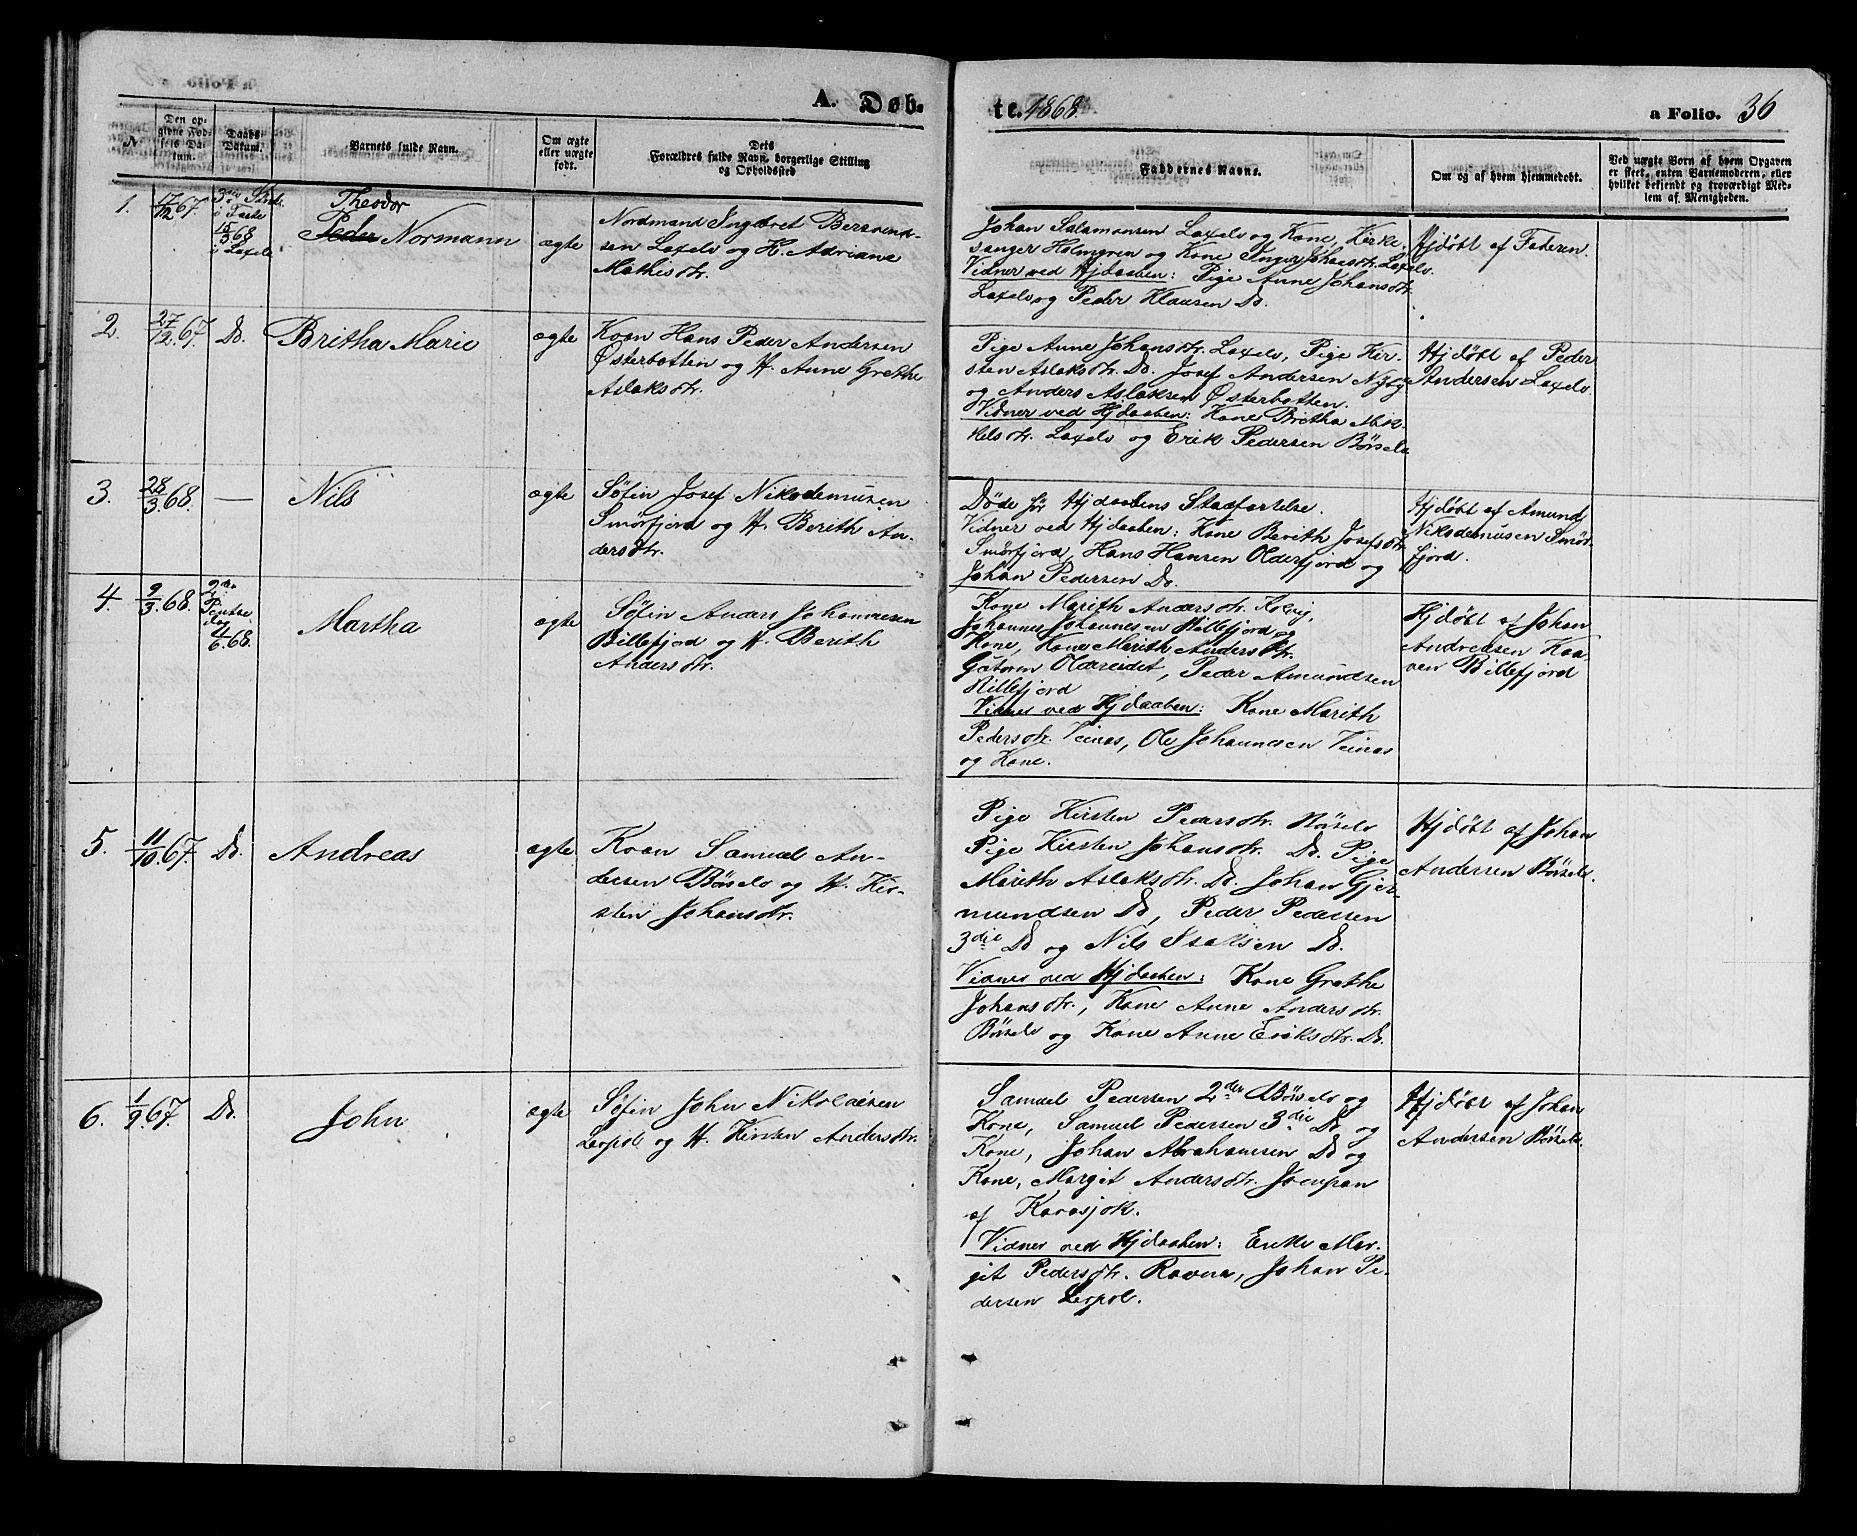 A. Døb-
te. 1868.
a Folio. 36
No.
Den op-
givne Fød-
sels Da-
tum.
Daabs
Datum.
Barnets fulde Navn.
Om ægte
eller uægte
født.
Dets
Forældres fulde Navn, borgerlige Stilling
og Opholdssted
Faddernes Navne.
Om og af hvem hjemmedøbt.
Ved uægte Børn af hvem Opgaven
er skeet, enten Barnemoderen, eller
hvilket bekjendt og troværdigt Med-
lem af Menigheden.
1.
17/12 67
3die S.
i Faste
15/3 68
i Laxelv
Theodor
Peder Normann
ægte
Nordmand Ingvaret
sen Laxelv og H. Adriane
Mathisdtr.
Johan Salamonsen Laxelv og Kone, Kirke-
sanger Holmgren og Kone Inger Johansdtr. Laxelv.
Vidner ved Hjdaaben: Pige Anne Johansdtr.
Laxelv og Peder Klausen Do.
Hjdøbt af Faderen.
2.
27/12 67.
Do.
Britha Marie
ægte
Kvæn Hans Peder Andersen
Østerbotten og H. Anne Grethe
Aslaksdtr.
Pige Anne Johansdtr. Laxelv, Pige Kir-
sten Aslaksdtr. Do. Josef Andersen Nyby
og Anders Aslaksen Østerbotten.
Vidner ved Hjdaaben: Kone Britha Mik-
kelsdtr. Laxelv og Erik Pedersen Børselv
Hjdøbt af Peder
Andersen Laxelv.
3.
28/3 68.
—
Nils
ægte
Søfin Josef Nikodemusen
Smørfjord og H. Berith An-
dersdtr.
Døde før Hjdaabens Stadfæstelse.
Vidner ved Hjdaaben: Kone Berith Josefsdtr.
Smørfjord, Hans Hansen Olderfjord og
Johan Pedersen Do.
Hjdøbt af Amund
Nikodemusen Smør-
fjord.
4.
9/3 68.
2den
Pintse
dag
6.68.
Martha
ægte
Søfin Anders Johannesen
Billefjord og H. Berith
Andersdtr.
Kone Marith Andersdtr. Kolvig,
Johannes Johannesen Billefjord og
Kone, Kone Marith Andersdtr.
Oldereidet, Peder Amundsen
Billefjord
Vidner ved Hjdaaben: Kone Marith
Pedersdtr. Veinæs, Ole Johannesen Veinæs
og Kone.
Hjdøbt af Johan
Andreasen Kaa-
ven Billefjord
5.
11/10 67.
Do.
Andreas
ægte
Kvæn Samuel An-
dersen Børselv og H. Kir-
sten Johansdtr.
Pige Kirsten Pedersdtr. Børselv
Pige Kirsten Johansdtr. Do. Pige
Marith Aslaksdtr. Do. Johan Gjer-
mundsen Do, Peder Pedersen
3die Do og Nils Isaksen Do.
Vidner ved Hjdaaben: Kone Grethe
Johansdtr., Kone Anne Andersdtr.
Børselv og Kone Anne Eriksdtr. Do.
Hjdøbt af Johan
Andersen Børselv.
6.
1/9 67.
Do.
John
ægte
Søfin John Nikolaisen
Leirpol og H. Kirsten Andersdtr.
Samuel Pedersen 2den Børselv og
Kone, Samuel Pedersen 3die Do og
Kone, Johan Abrahamsen Do og
Kone, Margit Andersdtr. Joenpan
af Karasjok.
Vidner ved Hjdaaben: Enke Mar-
git Pedersdtr. Ravna, Johan Pe-
dersen Leirpol.
Hjdøbt af Johan
Andersen Børselv